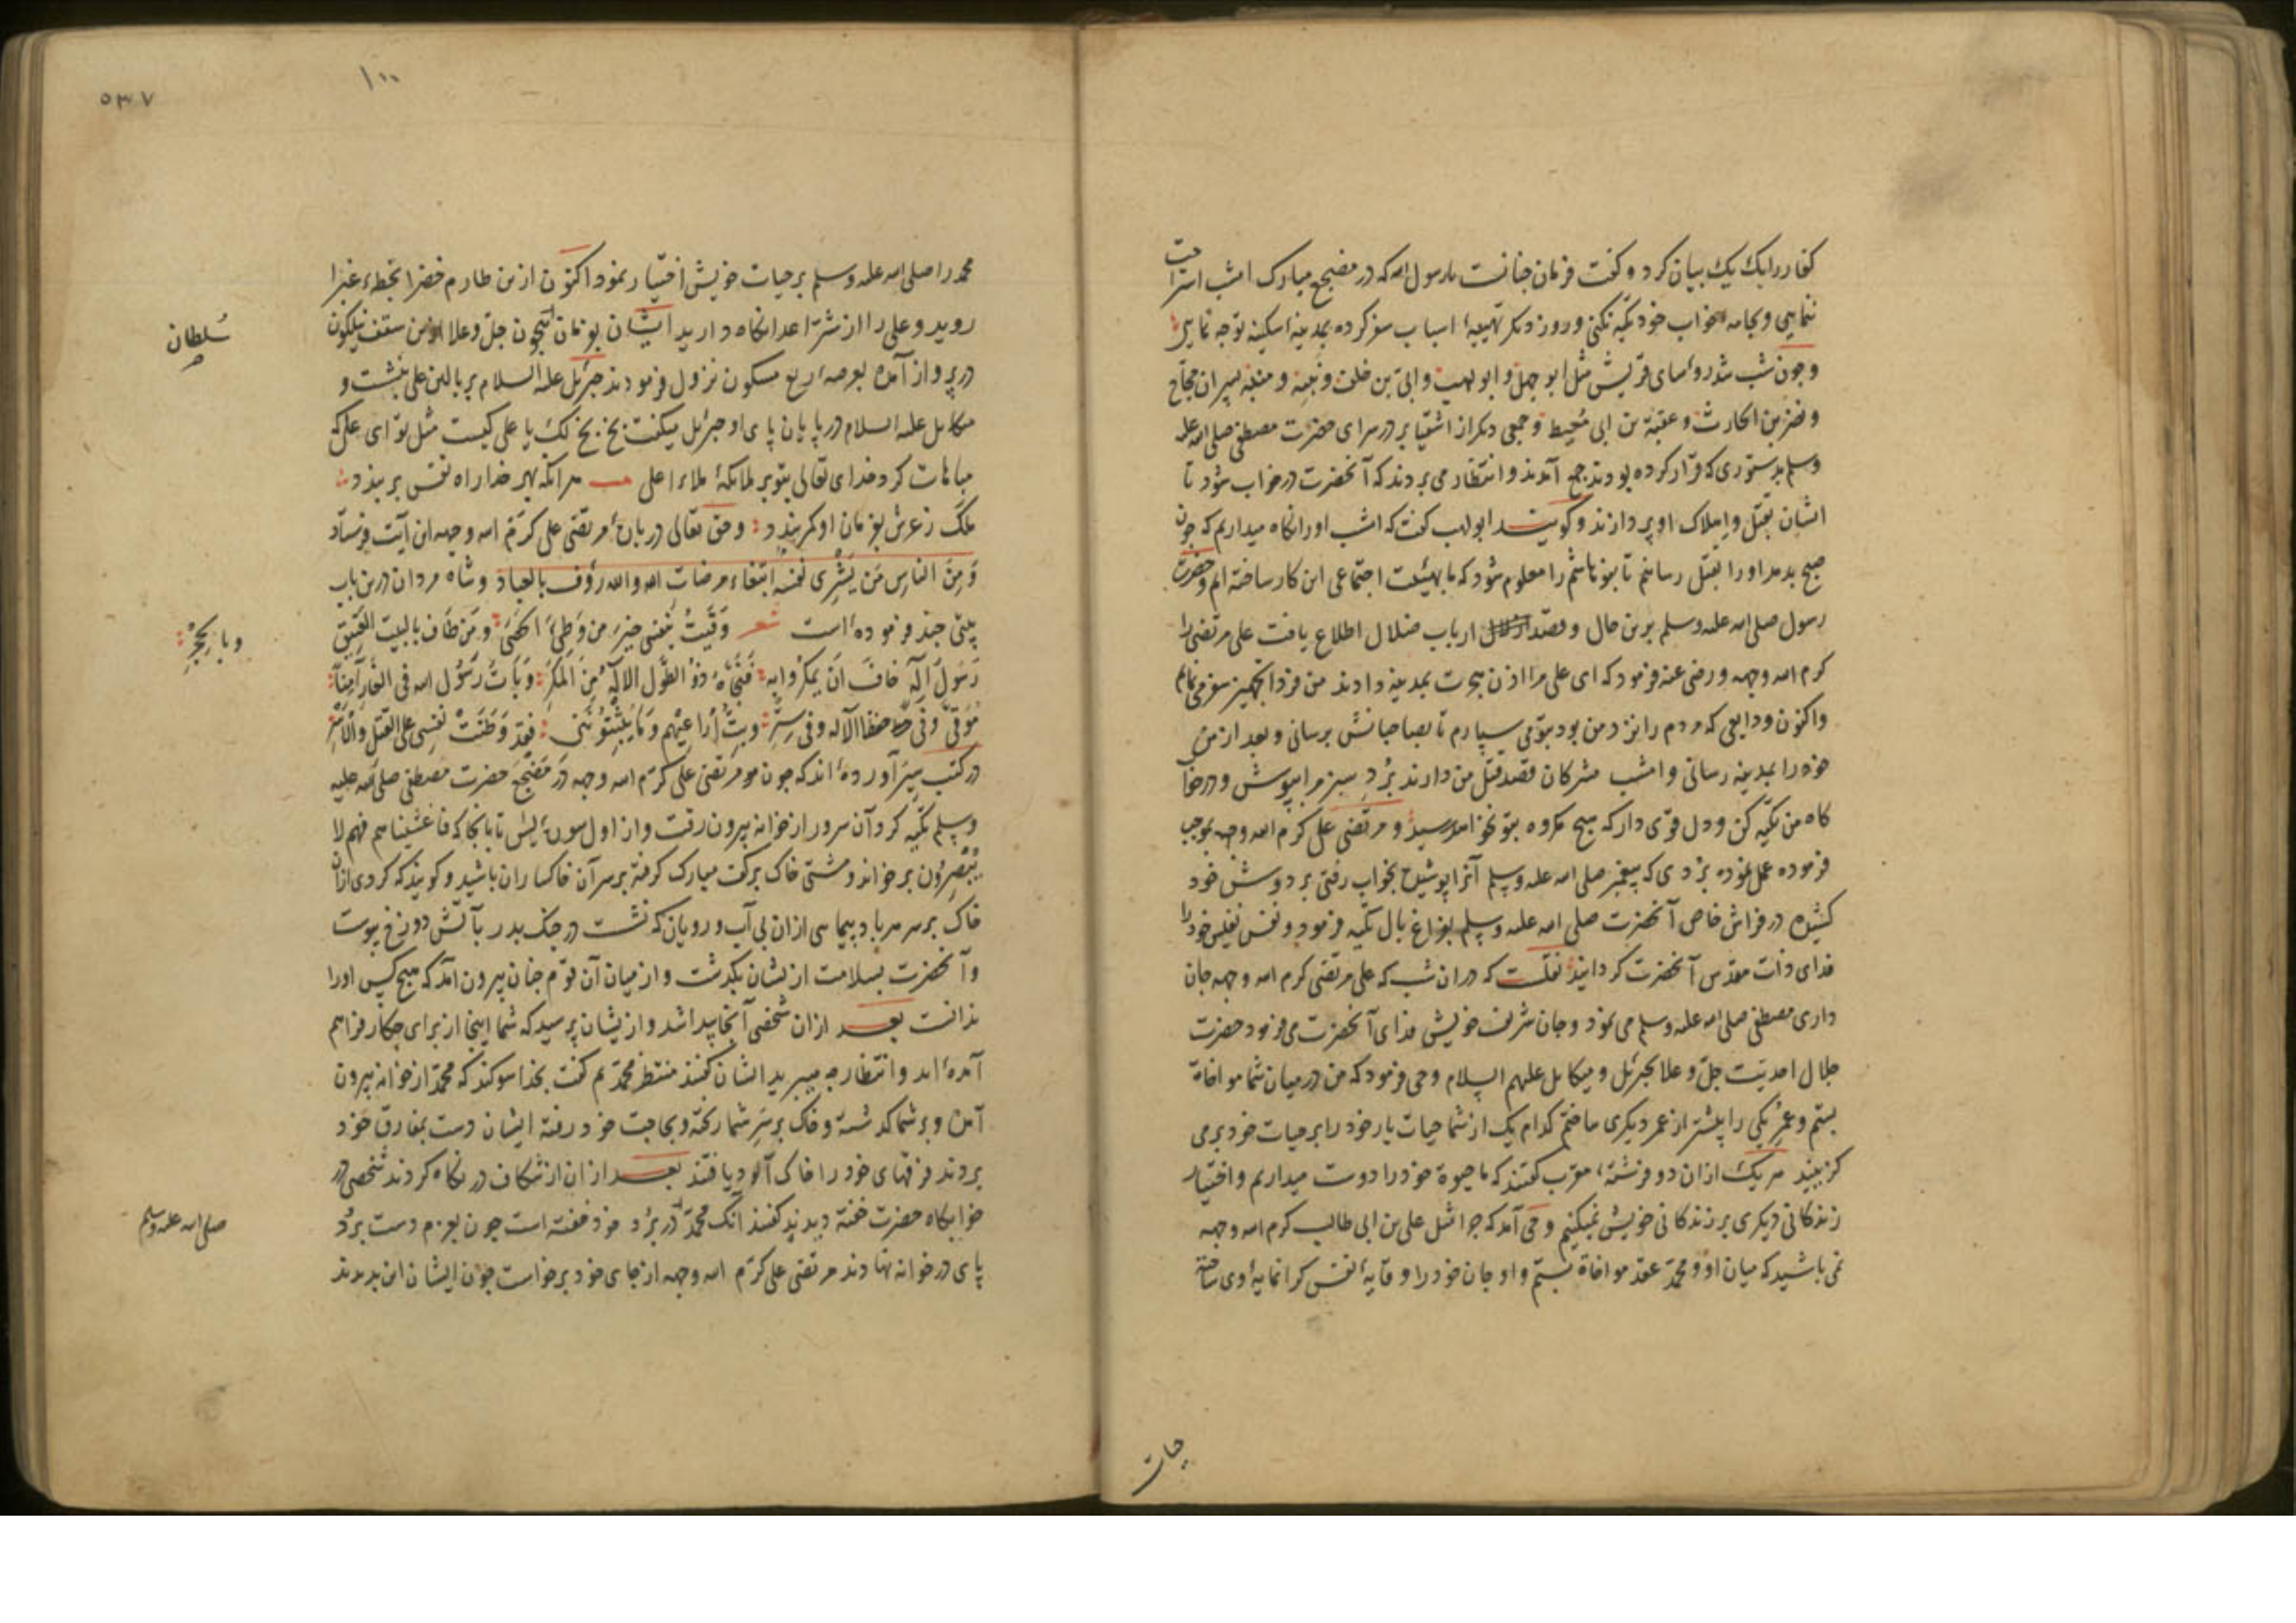 کفار را یک یک بیان کرد و گفت فرمان چنانست یا رسول الله که در مضجع مبارک امشب استراحت
ننمایی و بجامه خواب خود تکیه نکنی و روز دیگر تهییهٔ اسباب سفر کرده بمدینهٔ سکینه توجه نمایی
و چون شب شد رؤسای قریش مثل ابو جهل و ابو لهب و ابی بن خلف و نبیه و منبه پسران حجاج
و نضر بن الحارث و عقبة بن ابی معیط و جمعی دیگر از اشقیا بر در سرای حضرت مصطفی صلی الله علیه
وسلم بدستوری که قرار کرده بودند جمع آمدند و انتظار می بردند که آنحضرت در خواب شود تا
ایشان بقتل و اهلاک او پردازند و گویند ابولهب گفت که امشب او را نگاه میداریم که چون
صبح بدمد او را بقتل رسانیم تا بنو هاشم را معلوم شود که ما بهیئت اجتماعی این کار ساخته ایم و حضرت
رسول صلی الله علیه وسلم برین حال و قصد ارباب ضلال اطلاع یافت علی مرتضی را
کرم الله وجهه و رضی عنه فرمود که ای علی مرا اذن هجرت بمدینه دادند من فردا تجهیز سفر می نمایم
و اکنون ودایعی که مردم را نزد من بود بتو می سپارم تا بصاحبانش برسانی و بعد از من
خود را بمدینه رسانی و امشب مشرکان قصد قتل من دارند برد سبز مرا بپوش و در خوا
گاه من تکیه کن و دل قوی دار که هیچ مکروه بتو نخواهد رسید و مرتضی علی کرم الله وجهه بموجب
فرموده عمل نموده بردی که پیغمبر صلی الله علیه وسلم آنرا پوشیده بخواب رفتی بر دوش خود
کشیده در فراش خاص آنحضرت صلی الله علیه وسلم بفراغ بال تکیه فرمود و نفس نفیس خود را
فدای ذات مقدس آنحضرت گردانید نقلست که در ان شب که علی مرتضی کرم الله وجهه جان
داری مصطفی صلی الله علیه وسلم می نمود و جان شریف خویش فدای آنحضرت می فرمود حضرت
جلال احدیت جل و علا بجبرئیل و میکایل علیهم السلام وحی فرمود که من در میان شما مواخاة
بستم و عمر یکی را بیشتر از عمر دیگری ساختم کدام یک از شما حیات یار خود را بر حیات خود بر می
گزینید هر یک از ان دو فرشتهٔ مقرب گفتند که ما حیوة خود را دوست میداریم و اختیار
زندگانی دیگری بر زندگانی خویش نمیکنیم وحی آمد که چرا مثل علی بن ابی طالب کرم الله وجهه
نمی باشید که میان او و محمد عقد مواخاة بستم و او جان خود را وقایهٔ نفس گرانمایهٔ وی ساخته
حیات
۱۰۰
۵۳۷
محمد را صلی الله علیه وسلم بر حیات خویش اختیار نمود اکنون ازین طارم خضرا بخطهٔ غبرا
روید و علی را از شر اعدا نگاه دارید ایشان بفرمان بیچون جل و علا ازین سقف نیلگون
سلطان
در پرواز آمده بعرصهٔ ربع مسکون نزول فرمودند جبرئیل علیه السلام بر بالین علی بنشست و
میکایل علیه السلام در پایان پای او جبرئیل میگفت بخ بخ لک یا علی کیست مثل تو ای علی که
مباهات کرد خدای تعالی بتو بر ملائکهٔ ملاء اعلی هر انکه بهر خدا راه نفس بر بندد
ملک ز عرش بفرمان او کمر بندد و حق تعالی در بارهٔ مرتضی علی کرم الله وجهه این آیت فرستاد
وَمِنَ الناسِ مَن یَشْرِی نفسه ابتغاء مرضات الله والله رؤف بالعباد و شاه مردان درین باب
بیتی چند فرموده است شعر وَقَیتُ بنفسی خیر من وطئ الحصی و من طاف بالبیت العتیق
و بالحجر
رسول اله خاف ان یمکروا به فنجاه ذو الطول الاله من المکر و بات رسول الله فی الغار آمنا
موقی و فی حفظ الاله و فی ستر و بت اراعیهم و ما یثبتوننی فقد وطنت نفسی علی القتل والاسر
در کتب سیر آورده اند که چون مرتضی علی کرم الله وجهه در مضجع حضرت مصطفی صلی الله علیه
وسلم تکیه کرد آن سرور از خانه بیرون رفت و از اول سورهٔ یس تا بانجا که فاغشیناهم فهم لا
یبصرون بر خواند و مشتی خاک بر کف مبارک گرفته بر سر آن خاکساران پاشید و گویند که گردی از ان
خاک بر سر هر باد پیمایی از ان بی آب و رویان که نشست در جنک بدر بآتش دوزخ پیوست
و آنحضرت بسلامت ازیشان بگذشت و از میان آن قوم چنان بیرون آمد که هیچ کس او را
ندانست بعد از ان شخصی آنجا پیدا شد و ازیشان پرسید که شما اینجا از برای چکار فراهم
آمده اید و انتظار چه میبرید ایشان گفتند منتظر محمدیم گفت بخدا سوکند که محمد از خانه بیرون
آمد و بر شما گذشته و خاک بر سر شما ریخته و بحاجت خود رفته ایشان دست بمفارق خود
بردند فرقهای خود را خاک آلود یافتند بعد از ان از شکاف در نگاه کردند شخصی در
خوابگاه حضرت خفته دیدند گفتند آنک محمد در برد خود خفته است چون بعزم دست برد
صلی الله علیه وسلم
پای در خانه نهادند مرتضی علی کرم الله وجهه از جای خود برخواست چون ایشان این بدیدند